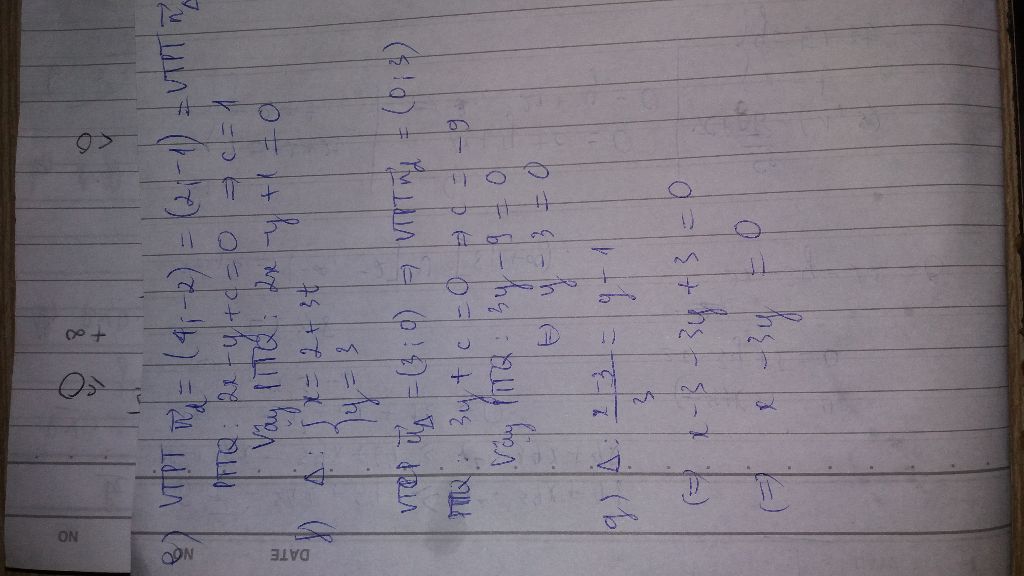 e) VTPT n⃗d = (4;-2) = (2;-1) = VTPT n⃗Δ
PTTQ: 2x - y + c = 0 ⇒ c = 1
Vậy PTTQ: 2x - y + 1 = 0
f) Δ: { x = 2 + 3t
y = 3
VTCP u⃗Δ = (3;0) ⇒ VTPT n⃗d = (0;3)
PTTQ 3y + c = 0 ⇒ c = -9
Vậy PTTQ: 3y - 9 = 0
⇔ y - 3 = 0
g) Δ: x - 3 / 3 = y - 1
⇔ x - 3 - 3y + 3 = 0
⇔ x - 3y = 0
NO
NO
DATE